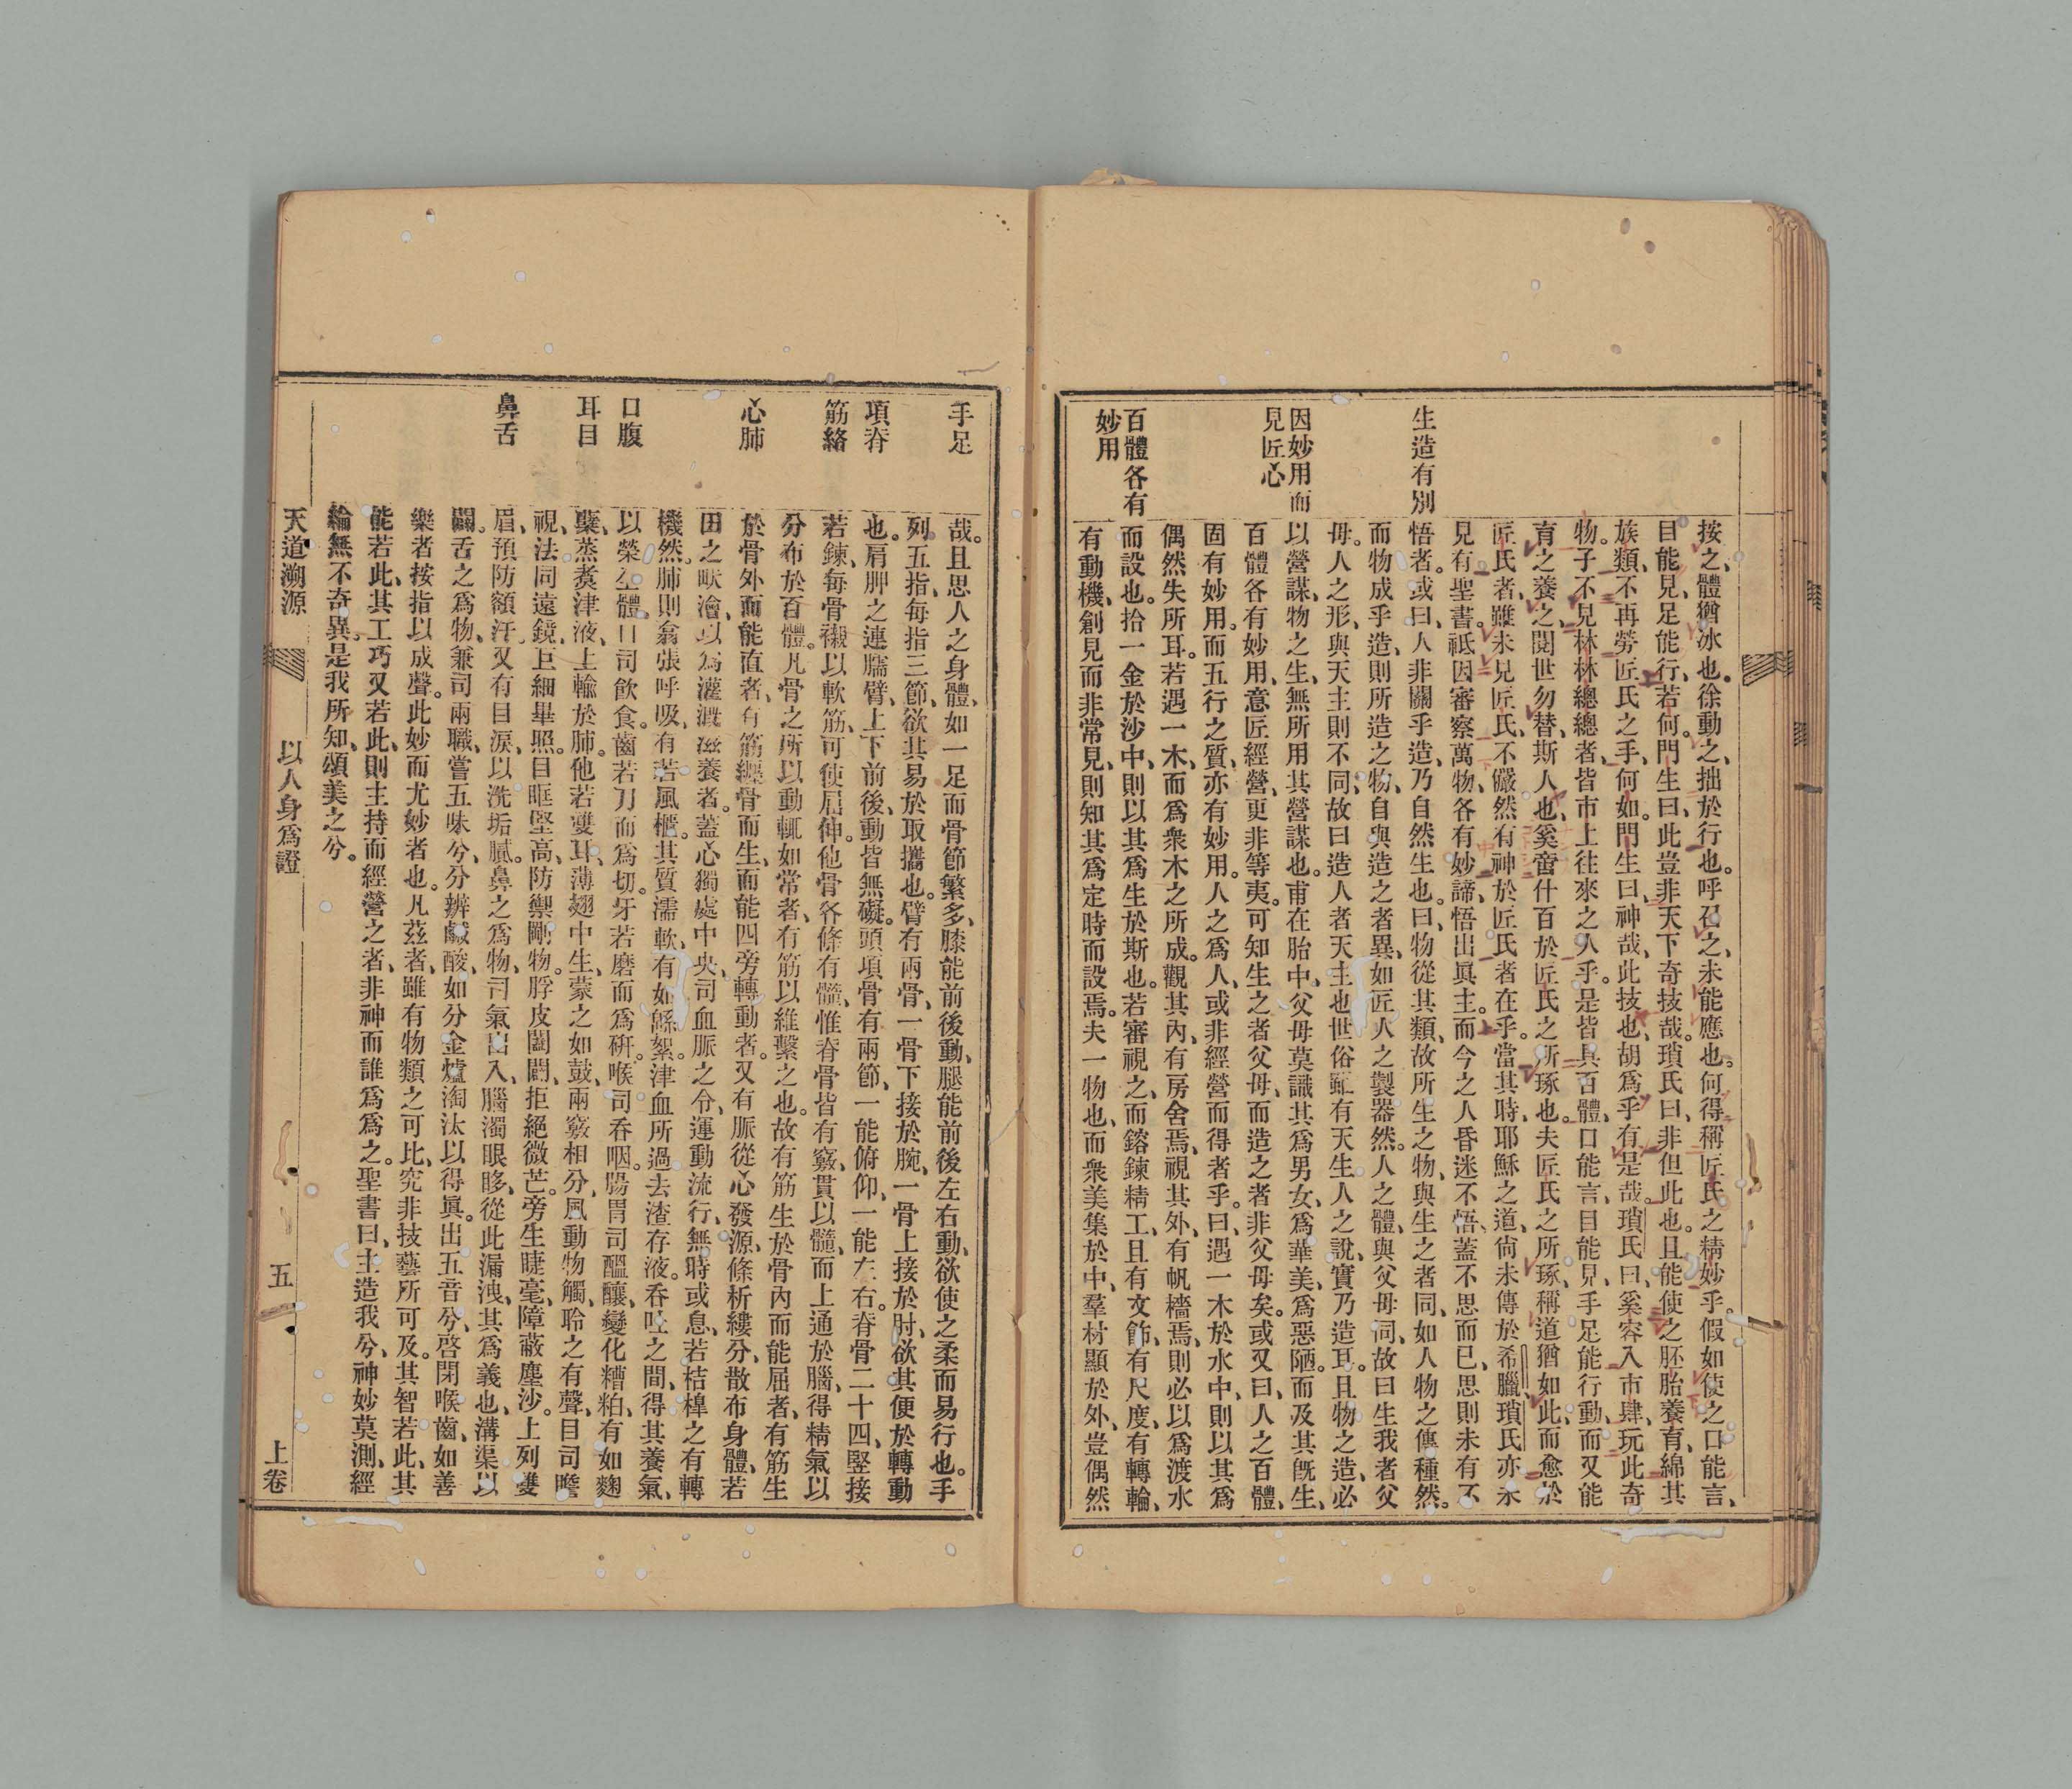 生造有別
因妙用而
見匠心
百體各有
妙用
按之、體猶冰也。徐動之、拙於行也。呼召之、未能應也。何得稱匠氏之精妙乎。假如使之口能言、
目能見、足能行、若何。門生曰、此豈非天下奇技哉。瑣氏曰、非但此也。且能使之胚胎養育、綿其
族類、不再勞匠氏之手、何如。門生曰、神哉、此技也、胡爲乎有是哉。瑣氏曰、奚容入市肆、玩此奇
物。子不見林林總總者、皆市上往來之人乎。是皆具百體、口能言、目能見、手足能行動、而又能
育之養之、閱世勿替、斯人也、奚啻什百於匠氏之所琢也。夫匠氏之所琢、稱道猶如此、而愈於
匠氏者、雖未見匠氏、不儼然有神於匠氏者在乎。當其時、耶穌之道、尙未傳於希臘、瑣氏亦未
見有聖書。祗因審察萬物、各有妙諦、悟出眞主。而今之人昏迷不悟、蓋不思而已、思則未有不
悟者。或曰、人非關乎造、乃自然生也。曰、物從其類、故所生之物、與生之者同、如人物之傳種然。
而物成乎造、則所造之物、自與造之者異、如匠人之製器然。人之體、與父母同、故曰生我者父
母。人之形、與天主則不同、故曰造人者天主也世俗雖有天生人之說、實乃造耳。且物之造、必
以營謀、物之生、無所用其營謀也。甫在胎中、父母莫識其爲男女、爲華美、爲惡陋。而及其旣生、
百體各有妙用、意匠經營、更非等夷。可知生之者父母、而造之者非父母矣。或又曰、人之百體、
固有妙用。而五行之質、亦有妙用。人之爲人、或非經營而得者乎。曰、遇一木於水中、則以其爲
偶然失所耳。若遇一木、而爲衆木之所成。觀其內、有房舍焉、視其外、有帆檣焉、則必以爲渡水
而設也。拾一金於沙中、則以其爲生於斯也。若審視之、而鎔鍊精工、且有文飾、有尺度、有轉輪、
有動機、創見而非常見、則知其爲定時而設焉。夫一物也、而衆美集於中、羣材顯於外、豈偶然
手足
項脊
筋絡
心肺
口腹
耳目
鼻舌
哉。且思人之身體、如一足而骨節繁多、膝能前後動、腿能前後左右動、欲使之柔而易行也。手
列五指、每指三節、欲其易於取攜也。臂有兩骨、一骨下接於腕、一骨上接於肘、欲其便於轉動
也。肩胛之連臑臂、上下前後、動皆無礙。頭項骨有兩節、一能俯仰、一能左右。脊骨二十四、堅接
若鍊、每骨襯以軟筋、可使屈伸。他骨各條有髓、惟脊骨皆有竅、貫以髓、而上通於腦、得精氣以
分布於百體。凡骨之所以動輒如常者、有筋以維繫之也。故有筋生於骨內而能屈者、有筋生
於骨外而能直者、有筋纏骨而生、而能四旁轉動者。又有脈從心發源、條析縷分、散布身體、若
田之畎澮、以爲灌漑滋養者。蓋心獨處中央、司血脈之令、運動流行、無時或息、若桔槹之有轉
機然。肺則翕張呼吸、有若風櫃。其質濡軟、有如緜絮。津血所過、去渣存液。吞吐之間、得其養氣、
以榮全體。口司飮食。齒若刀而爲切。牙若磨而爲硏。喉司吞咽。腸胃司醞釀、變化糟粕、有如麴
蘗、蒸煑津液、上輸於肺。他若雙耳、薄翅中生、蒙之如鼓、兩竅相分、風動物觸、聆之有聲、目司瞻
視、法同遠鏡、巨細畢照。目眶堅高、防禦剛物。脬皮闔闢、拒絕微芒。旁生睫毫、障蔽塵沙。上列雙
眉、預防額汗、又有目淚、以洗垢膩。鼻之爲物、司氣出入、腦濁眼眵、從此漏洩、其爲義也、溝渠以
闢。舌之爲物、兼司兩職、嘗五味兮、分辨鹹酸、如分金爐淘汰以得眞。出五音兮、啓閉喉齒、如善
樂者按指以成聲。此妙而尤妙者也。凡茲者、雖有物類之可比、究非技藝所可及。其智若此、其
能若此、其工巧又若此、則主持而經營之者、非神而誰爲爲之。聖書曰、主造我兮、神妙莫測、經
綸無不奇異。是我所知、頌美之兮。
天道溯源　以人身爲證　五　上卷